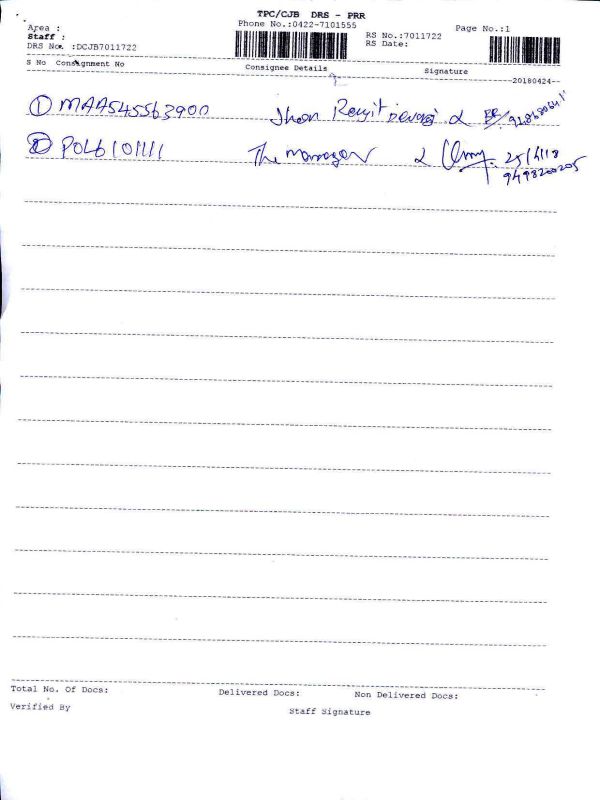 TPC/CJB DRS - PRR
Phone No.:0422-7101555
Page No.:1
Area :
Staff :
DRS No. :DCJB7011722
RS No.:7011722
RS Date:
S No Consignment No Consignee Details Signature
20180424
1 MAA545563900
2 POL6101111 The manager 25/4/18
9498200205
Total No. Of Docs: Delivered Docs: Non Delivered Docs:
Verified By Staff Signature